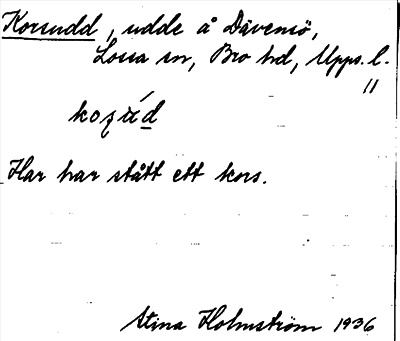 Korsudd, udde å Dävensö,
Lossa sn, Bro hd, Upps. l.
"
kozúd
Här har stått ett kors.
Stina Holmström 1936